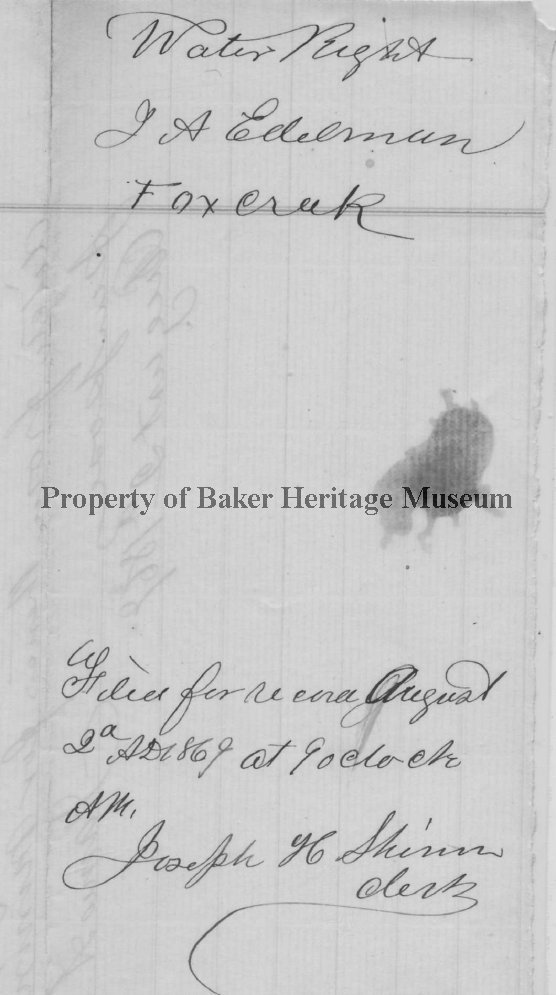 Water Right
J A Edelman
Fox creek
Property of Baker Heritage Museum
Filed for record August
2d AD 1869 at 9 oclock
AM.
Joseph H Shinn
clerk